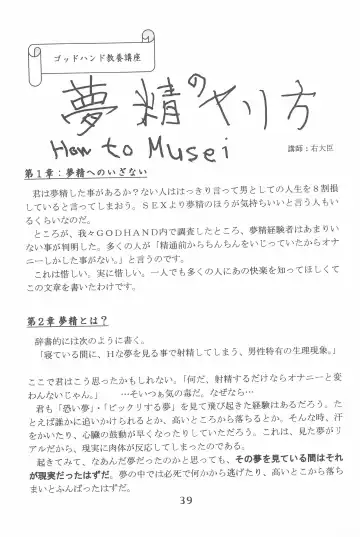 ゴッドハンド教養講座
夢精のヤリ方
How to Musei
講師：右大臣
第１章：夢精へのいざない
君は夢精した事があるか？ない人ははっきり言って男としての人生を８割損
していると言ってしまおう。ＳＥＸより夢精のほうが気持ちいいと言う人もい
るくらいなのだ。
ところが、我々ＧＯＤＨＡＮＤ内で調査したところ、夢精経験者はあまりい
ない事が判明した。多くの人が「精通前からちんちんをいじっていたからオナ
ニーしかした事がない。」と言うのです。
これは惜しい。実に惜しい。一人でも多くの人にあの快楽を知ってほしくて
この文章を書いたわけです。
第２章 夢精とは？
辞書的には次のように書く。
「寝ている間に、Ｈな夢を見る事で射精してしまう、男性特有の生理現象。」
ここで君はこう思ったかもしれない。「何だ、射精するだけならオナニーと変
わんないじゃん。」　…そいつぁ気の毒だ。なぜなら…
君も「恐い夢」・「ビックリする夢」を見て飛び起きた経験はあるだろう。た
とえば誰かに追いかけられるとか、高いところから落ちるとか。そんな時、汗
をかいたり、心臓の鼓動が早くなったりしていただろう。これは、見た夢がリ
アルだから、現実に肉体が反応してしまったのである。
起きてみて、なあんだ夢だったのかと思っても、その夢を見ている間はそれ
が現実だったはずだ。夢の中では必死で何かから逃げたり、高いとこから落ち
まいとふんばったはずだ。
39